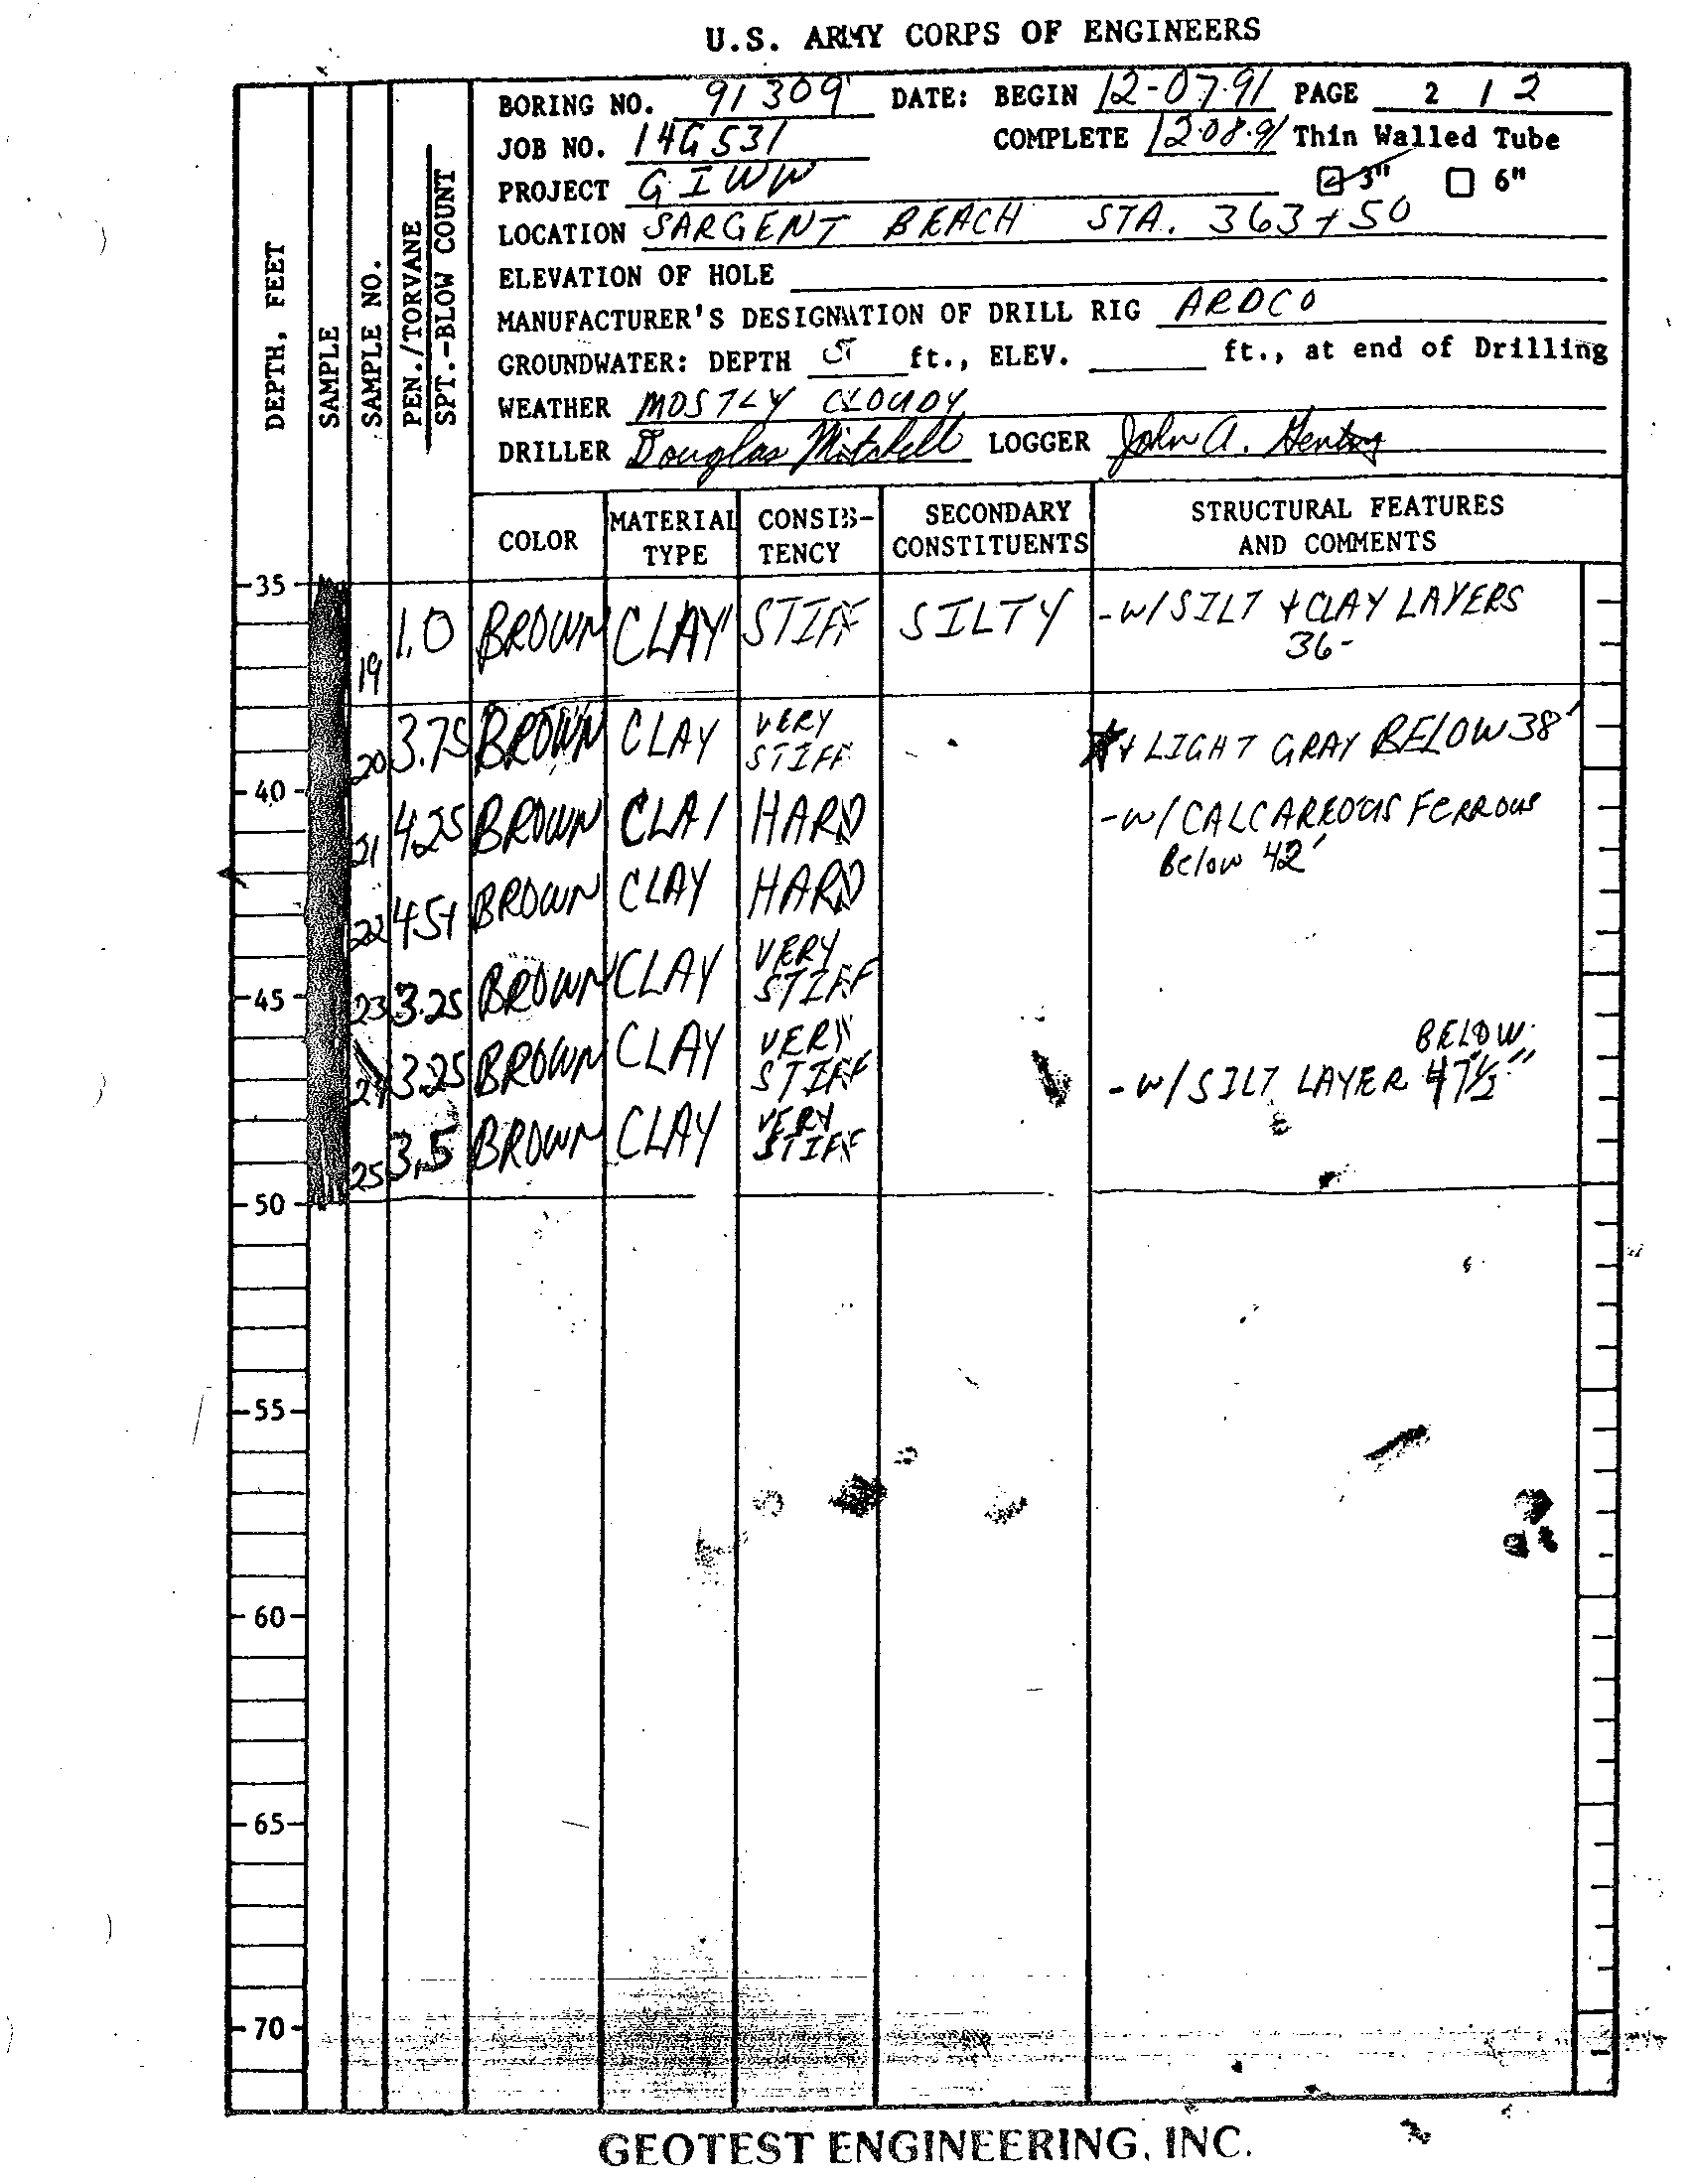 U.S. ARMY CORPS OF ENGINEERS
BORING NO. 91309 DATE: BEGIN 12-07-91 PAGE 2 / 2
JOB NO. 14G531 COMPLETE 12-08-91 Thin Walled Tube
PROJECT GIWW 3" 6"
LOCATION SARGENT BEACH STA. 363+50
ELEVATION OF HOLE
MANUFACTURER'S DESIGNATION OF DRILL RIG ARDCO
GROUNDWATER: DEPTH 5 ft., ELEV. ft., at end of Drilling
WEATHER MOSTLY CLOUDY
DRILLER Douglas Mitchell LOGGER John A.
DEPTH, FEET
SAMPLE
SAMPLE NO.
PEN./TORVANE
SPT.-BLOW COUNT
COLOR MATERIAL TYPE CONSIS-TENCY SECONDARY CONSTITUENTS STRUCTURAL FEATURES AND COMMENTS
35
19 1.0 BROWN CLAY STIFF SILTY -W/SILT + CLAY LAYERS
36-
20 3.75 BROWN CLAY VERY STIFF - + LIGHT GRAY BELOW 38'
40
21 4.25 BROWN CLAY HARD -W/CALCAREOUS FERROUS
Below 42'
22 4.5+ BROWN CLAY HARD
45
23 3.25 BROWN CLAY VERY STIFF
24 3.25 BROWN CLAY VERY STIFF -W/SILT LAYER BELOW 47½"
25 3.5 BROWN CLAY VERY STIFF
50
55
60
65
70
GEOTEST ENGINEERING, INC.